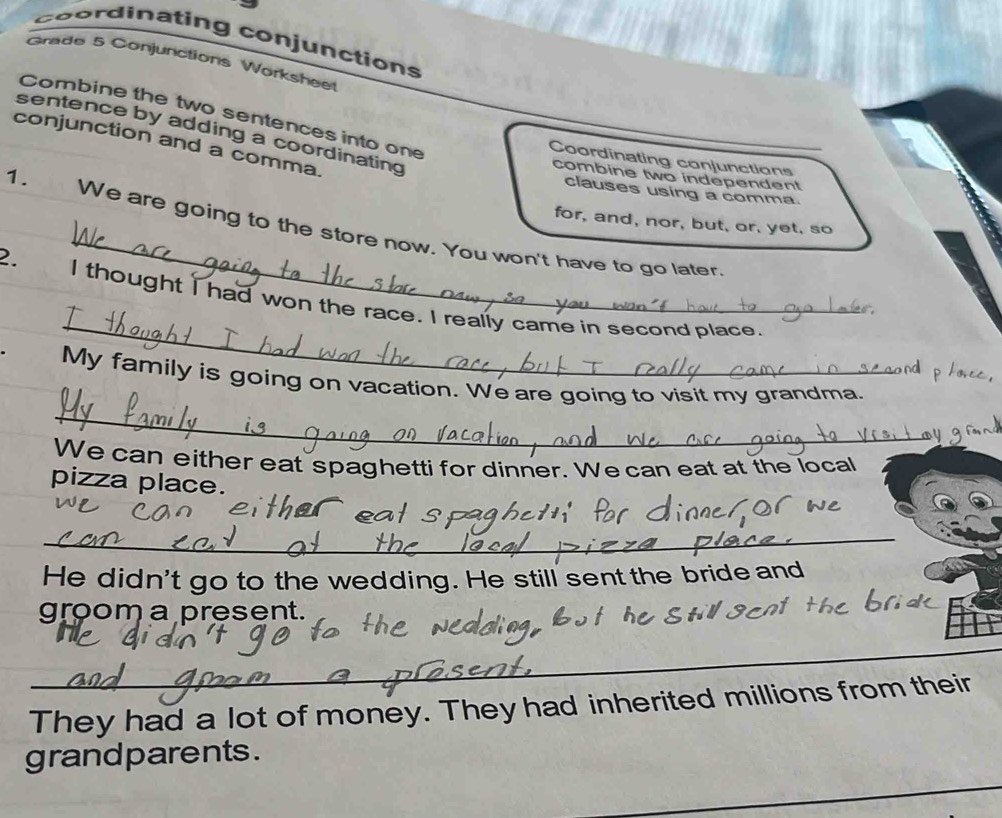 coordinating conjunctions
Grade 5 Conjunctions Worksheet
Combine the two sentences into one
sentence by adding a coordinating
conjunction and a comma.
Coordinating conjunctions
combine two independent
clauses using a comma.
for, and, nor, but, or, yet, so
1. We are going to the store now. You won't have to go later.
We are going to the store now, so you won't have to go later.
2. I thought I had won the race. I really came in second place.
I thought I had won the race, but I really came in second place,
My family is going on vacation. We are going to visit my grandma.
My family is going on vacation, and we are going to visit my grand
We can either eat spaghetti for dinner. We can eat at the local
pizza place.
we can either eat spaghetti for dinner, or we
can eat at the local pizza place.
He didn't go to the wedding. He still sent the bride and
groom a present.
He didn't go to the wedding, but he still sent the bride
and groom a present.
They had a lot of money. They had inherited millions from their
grandparents.